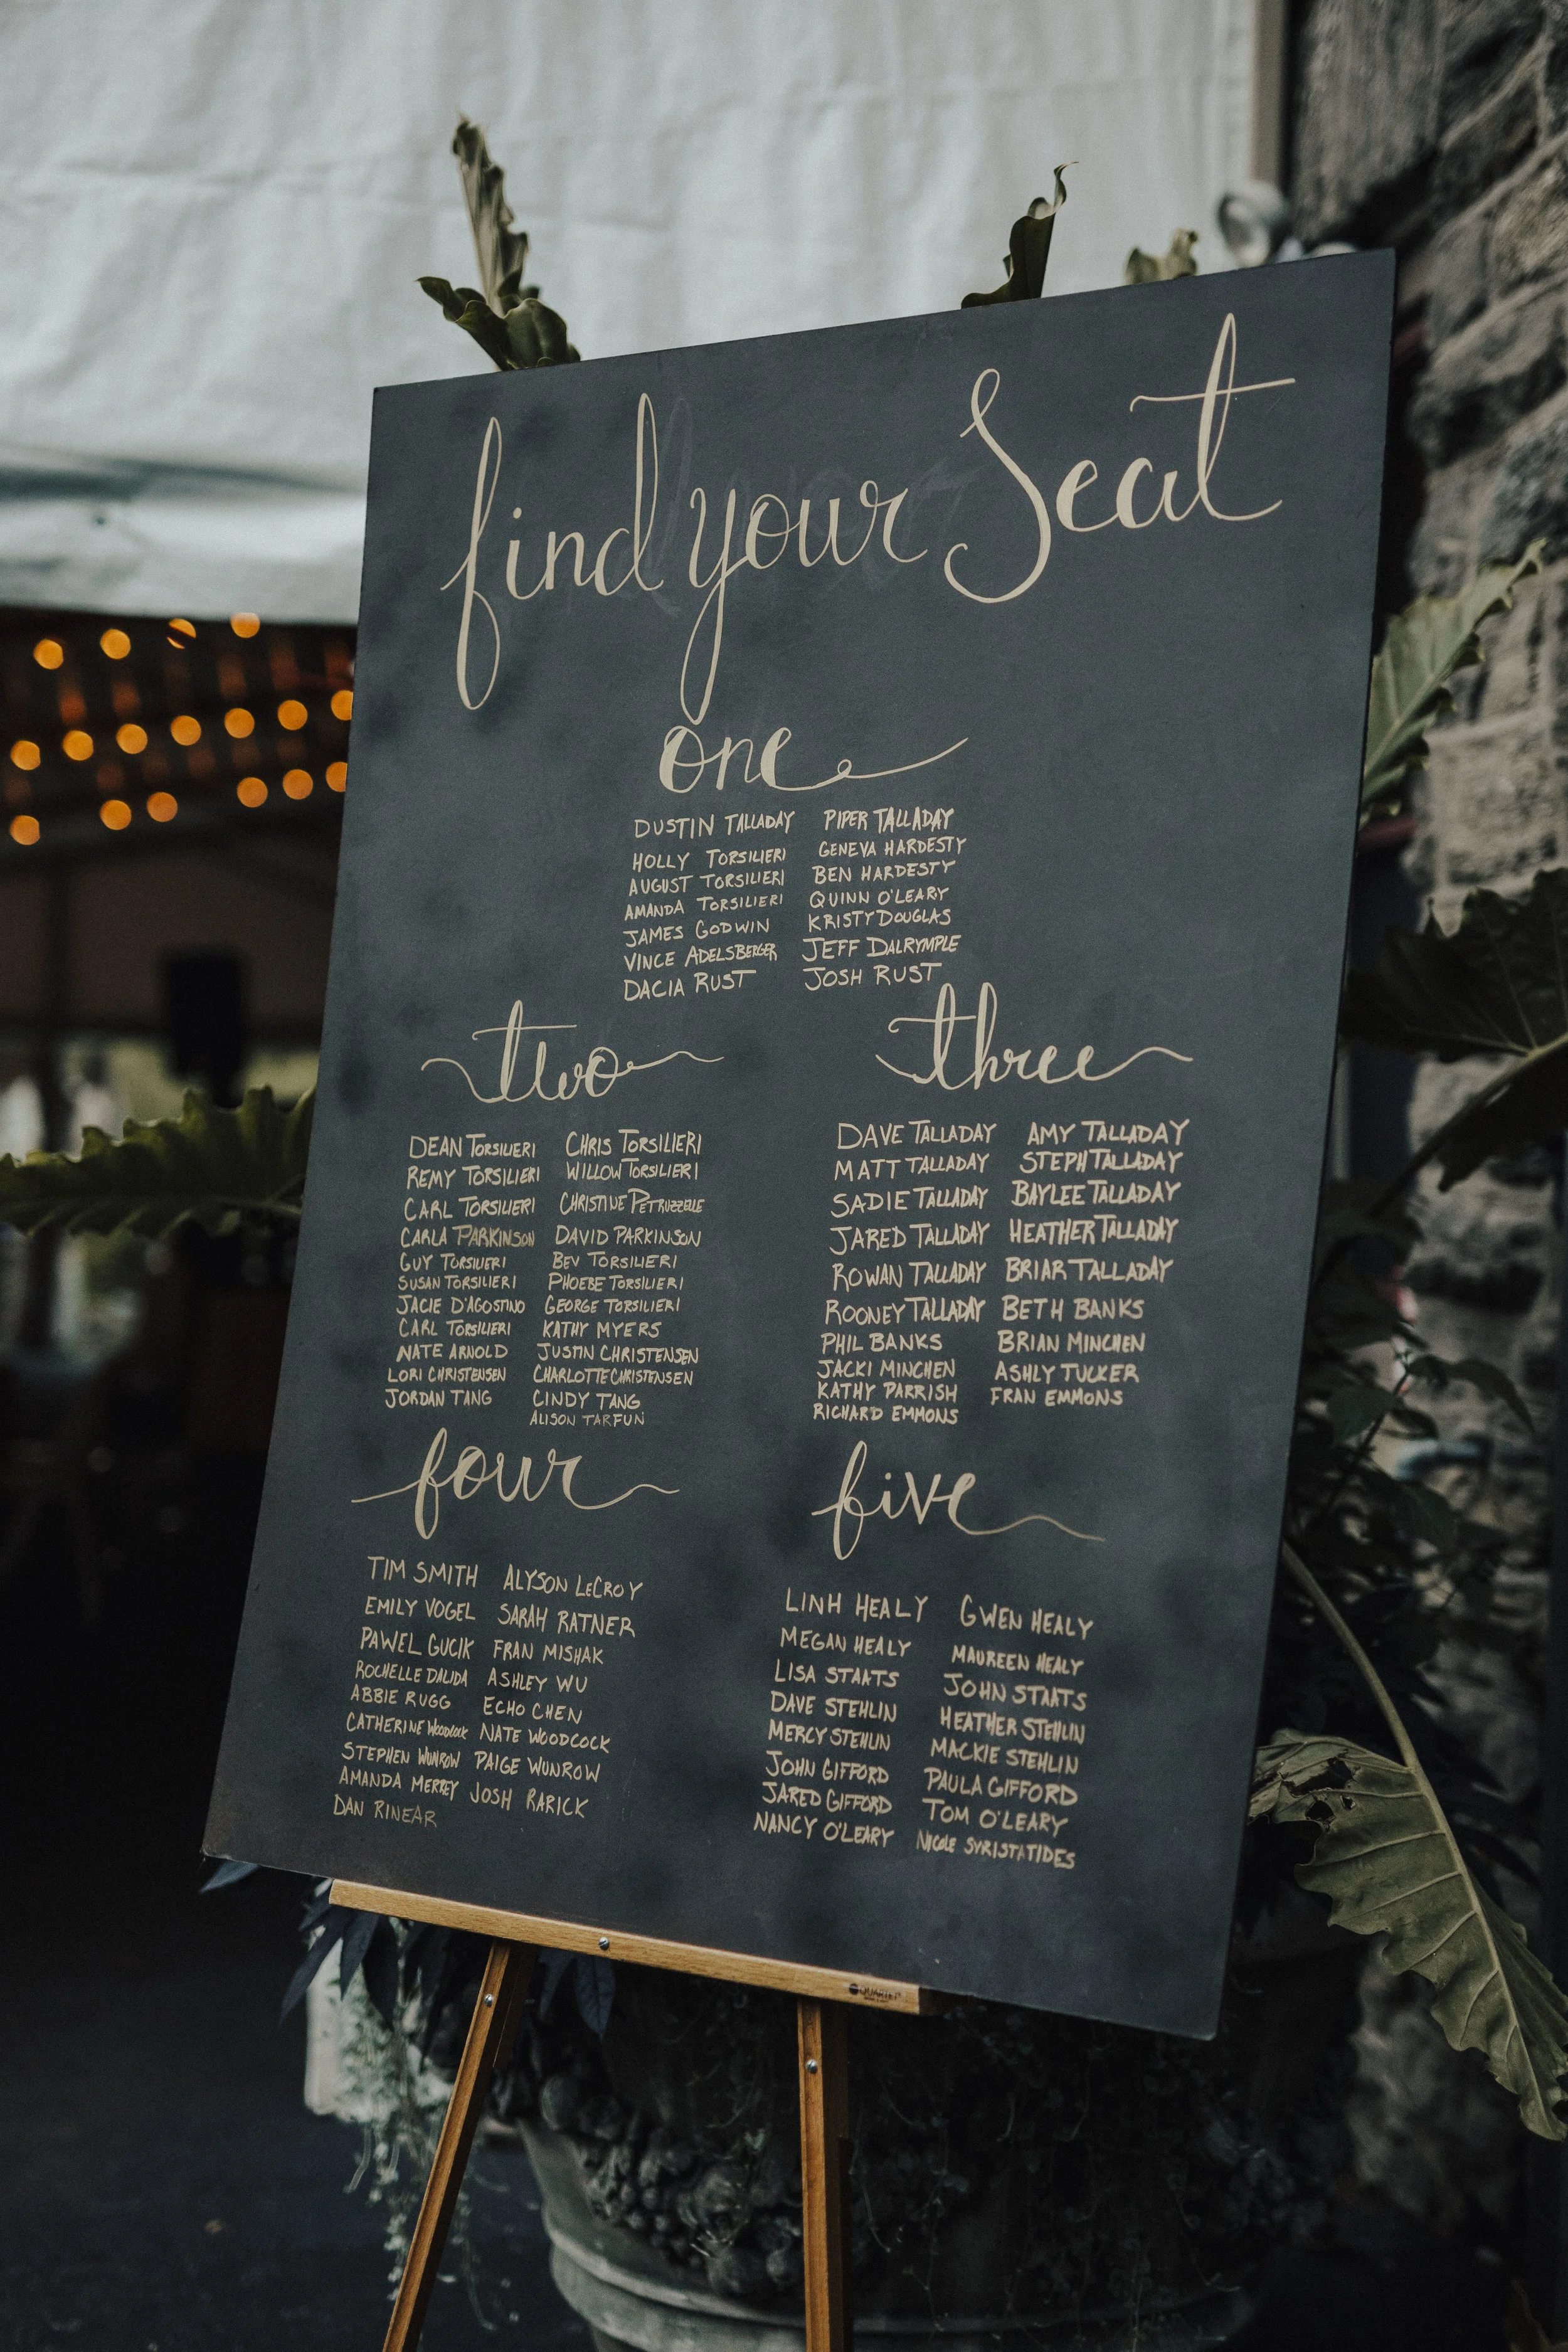 find your Seat
one
DUSTIN TALLADAY PIPER TALLADAY
HOLLY TORSILIERI GENEVA HARDESTY
AUGUST TORSILIERI BEN HARDESTY
AMANDA TORSILIERI QUINN O'LEARY
JAMES GODWIN KRISTY DOUGLAS
VINCE ADELSBERGER JEFF DALRYMPLE
DACIA RUST JOSH RUST
two
DEAN TORSILIERI CHRIS TORSILIERI
REMY TORSILIERI WILLOW TORSILIERI
CARL TORSILIERI CHRISTINE PETRUZZELLE
CARLA PARKINSON DAVID PARKINSON
GUY TORSILIERI BEV TORSILIERI
SUSAN TORSILIERI PHOEBE TORSILIERI
JACIE D'AGOSTINO GEORGE TORSILIERI
CARL TORSILIERI KATHY MYERS
NATE ARNOLD JUSTIN CHRISTENSEN
LORI CHRISTENSEN CHARLOTTE CHRISTENSEN
JORDAN TANG CINDY TANG
ALISON TARFUN
three
DAVE TALLADAY AMY TALLADAY
MATT TALLADAY STEPH TALLADAY
SADIE TALLADAY BAYLEE TALLADAY
JARED TALLADAY HEATHER TALLADAY
ROWAN TALLADAY BRIAR TALLADAY
ROONEY TALLADAY BETH BANKS
PHIL BANKS BRIAN MINCHEN
JACKI MINCHEN ASHLY TUCKER
KATHY PARRISH FRAN EMMONS
RICHARD EMMONS
four
TIM SMITH ALYSON LECROY
EMILY VOGEL SARAH RATNER
PAWEL GUCIK FRAN MISHAK
ROCHELLE DALIDA ASHLEY WU
ABBIE RUGG ECHO CHEN
CATHERINE Woodcock NATE WOODCOCK
STEPHEN WUNROW PAIGE WUNROW
AMANDA MERREY JOSH RARICK
DAN RINEAR
five
LINH HEALY GWEN HEALY
MEGAN HEALY MAUREEN HEALY
LISA STAATS JOHN STAATS
DAVE STEHLIN HEATHER STEHLIN
MERCY STEHLIN MACKIE STEHLIN
JOHN GIFFORD PAULA GIFFORD
JARED GIFFORD TOM O'LEARY
NANCY O'LEARY NICOLE SYRISTATIDES
QUARTET